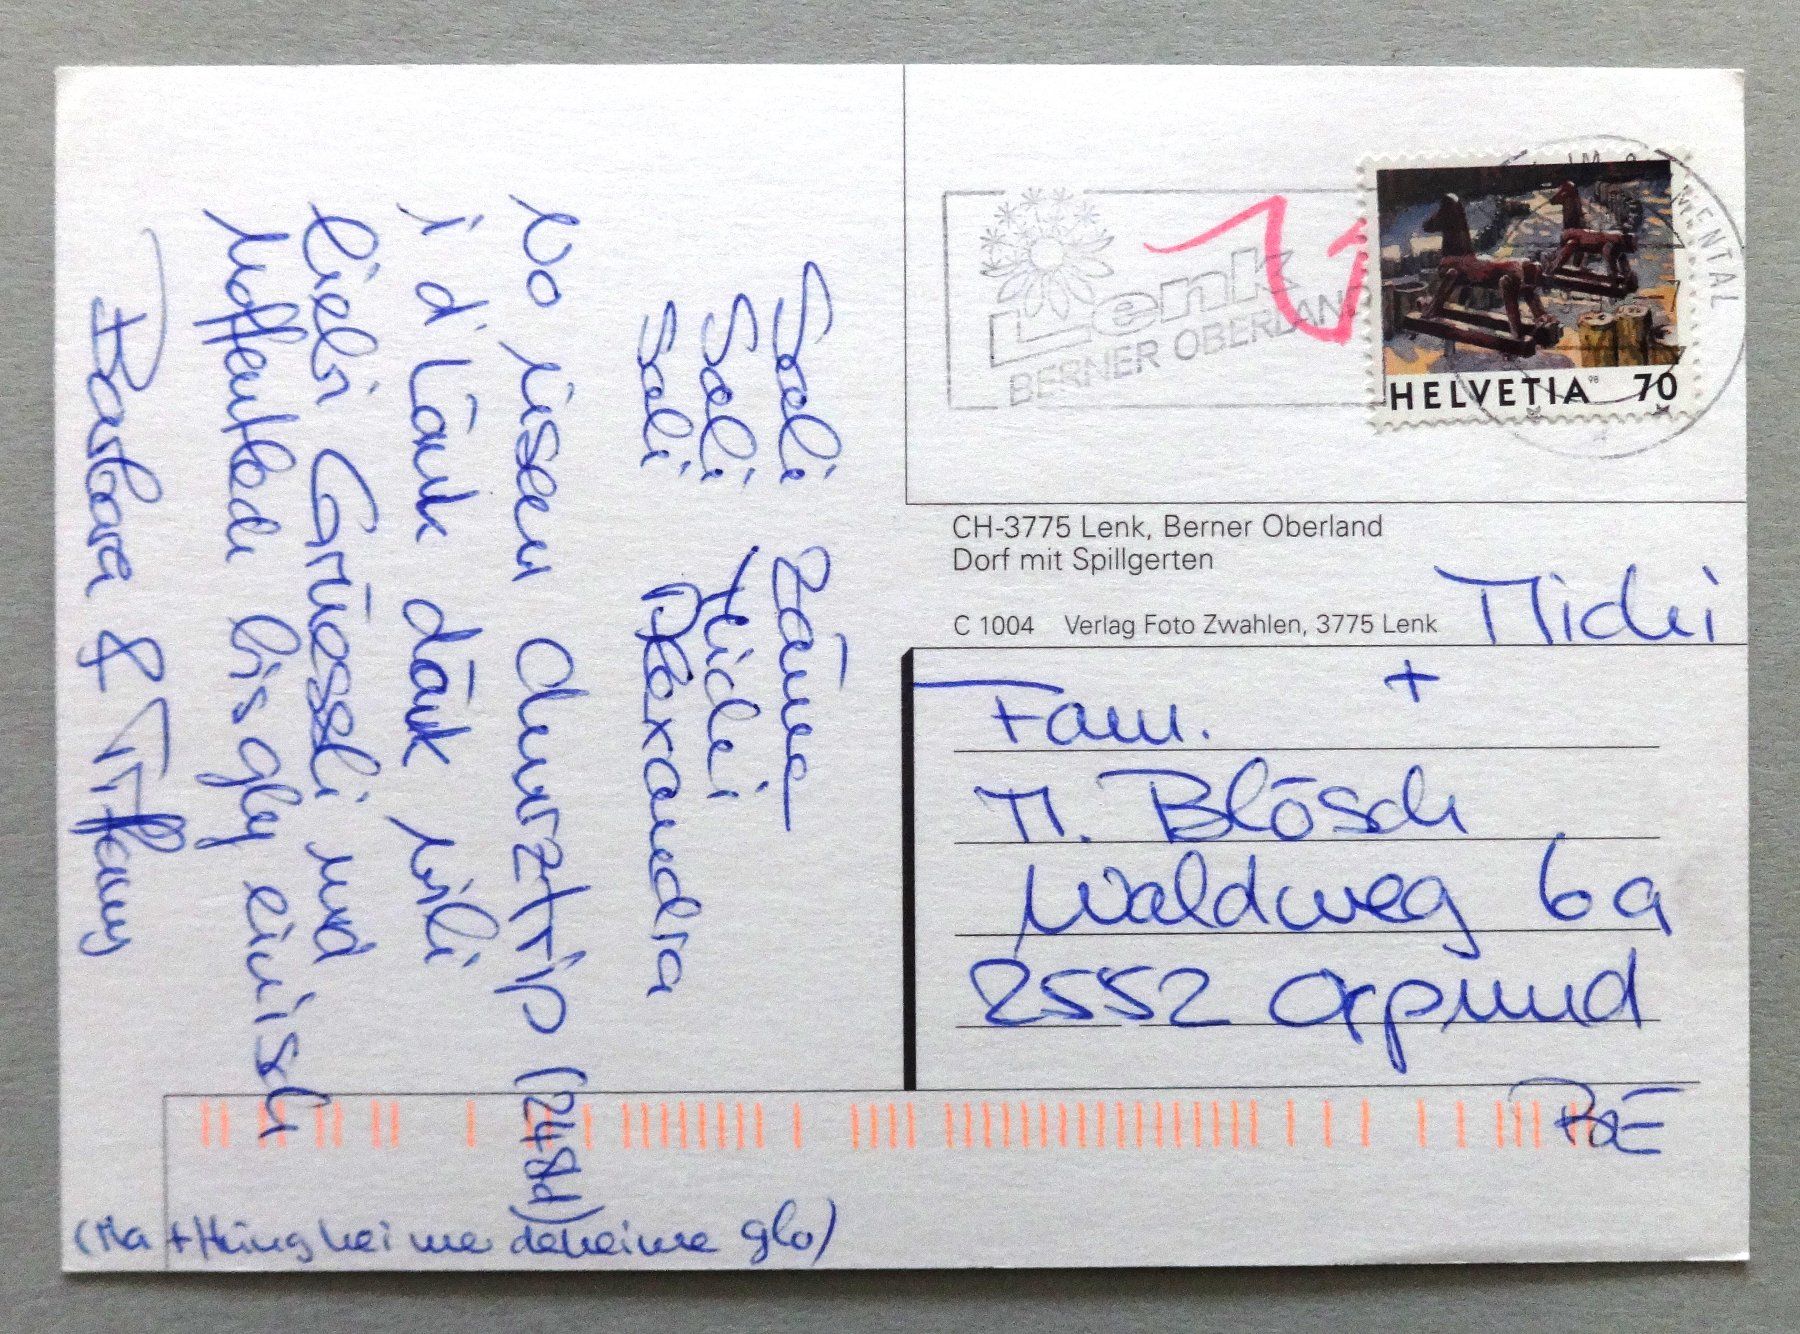 Sali zäme
Sali Michi
Sali Alexandra
Vo üsem Churztrip (24Std)
i d'Länk dänk vili
liebi Grüessli und
hoffentlech bis gly einisch
Barbara & Tiffany
(Ma + Hüng hei mer deheime glo)
Lenk
BERNER OBERLAND
LENK IM SIMMENTAL
HELVETIA 98 70
CH-3775 Lenk, Berner Oberland
Dorf mit Spillgerten
C 1004 Verlag Foto Zwahlen, 3775 Lenk
Michi
+
Fam.
M. Blösch
Waldweg 6a
2552 Orpund
BE